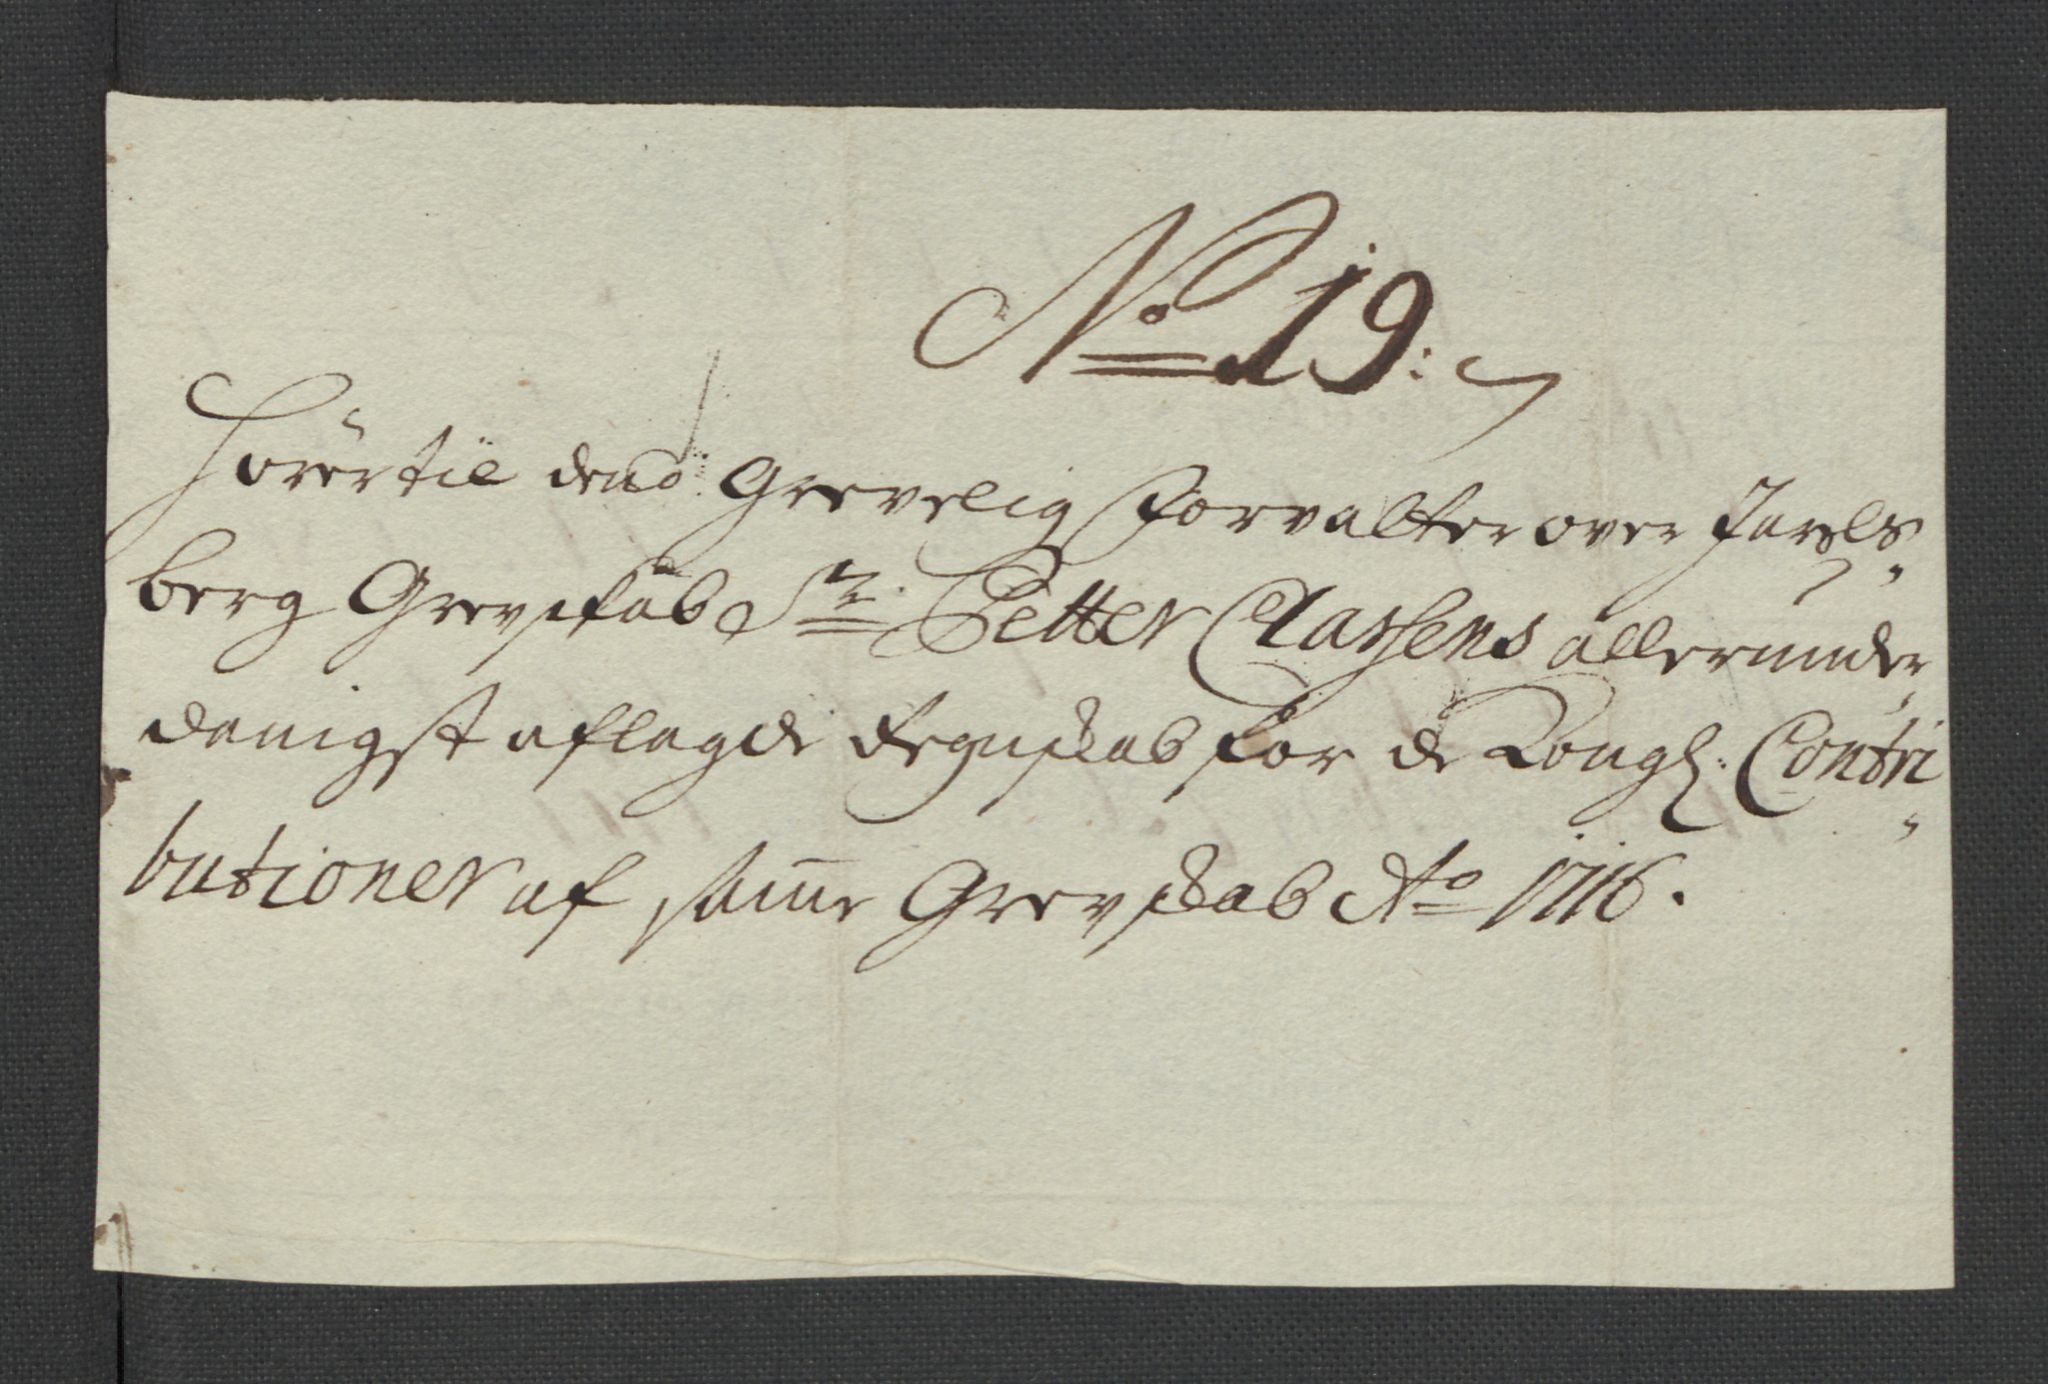 No 19:
Hörer til den Grevelig Forvalter over Jarls,
berg Grevskab Sr. Petter Clausens allerunder,
danigst aflagde Regnskab for de Kongl: Contri,
butioner af samme Grevskab Ao 1716.